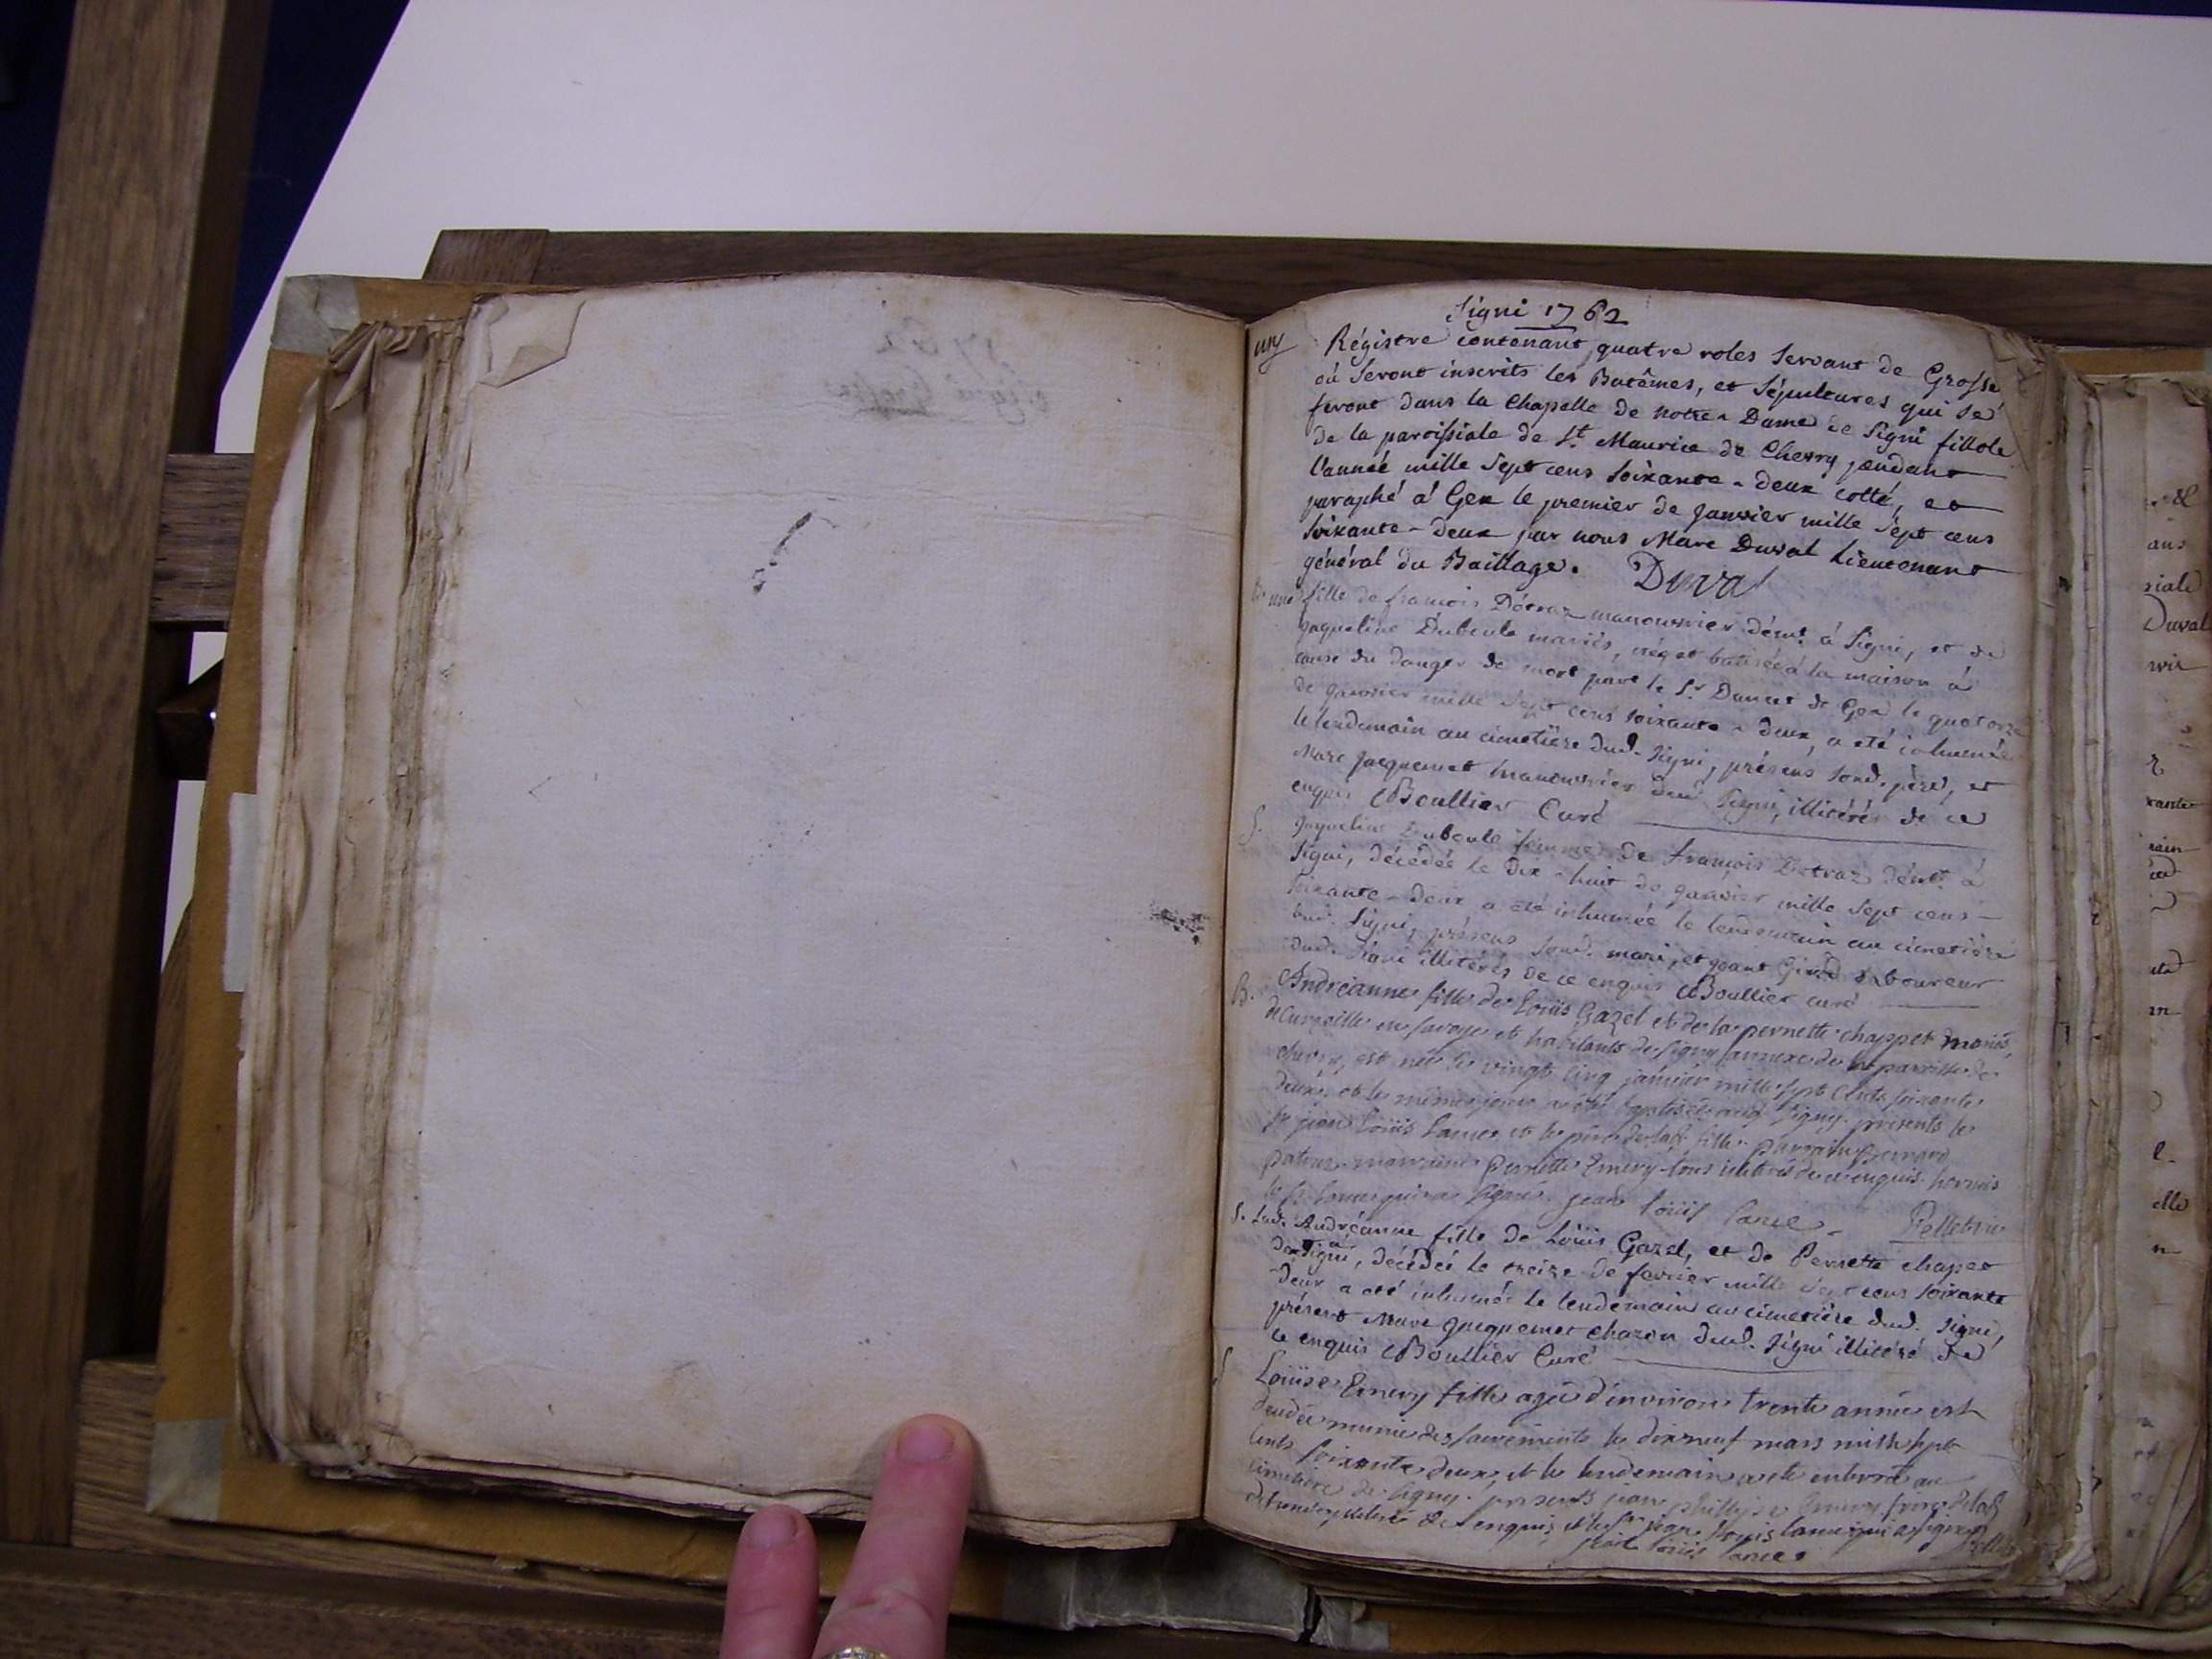 Signi 1762
Régistre contenant quatre roles servant de Grosse
où seront inscrits les Batêmes, et Sépultures qui se
feront dans la Chapelle de notre-Dame de Signi fillole
de la paroissiale de St. Maurice de Chevry pendant
l'année mille sept cens soixante-deux cotté, et
paraphé à Gex le premier de janvier mille sept cens
soixante-deux par nous Marc Duval Lieutenant
général du Baillage. Duval
B. une fille de françois Détraz manouvrier démt. à Signi, et de
jaqueline Duboule mariés, née et batisée à la maison à
cause du danger de mort par le Sr. de Gex le quatorze
de janvier mille sept cens soixante-deux, a été inhumée
le lendemain au cimetière dud. Signi, présens soud. père, et
Marc jacquemet manouvrier dud. Signi, illitérés de ce
enquis Boullier Curé
S. jaqueline Duboule femme de françois Détraz démt. à
Signi, décédée le dix-huit de janvier mille sept cens
soixante-deux a été inhumée le lendemain au cimetière
dud. Signi, présens soud. mari, et jeant Girod laboureur
dud. Signi illitérés de ce enquis Boullier curé
B. Andréanne fille de Loüis Gazel et de la pernette chappet mariés,
de en savoye et habitants de signy annexe de la paroisse de
chevry, est née le vingt cinq janvier mille sept cents soixante
deux, et le même jour a été baptisée aud. Signy. présents le
Sr jean Loüis Lance et le père de lad. fille. parrain bernard
marraine pernette Emery tous illitérés de ce enquis hormis
le Sr. Lance qui a signé. jean loüis lance
S. Lad. Andréanne fille de Loüis Gazel, et de Pernette chapet
à Signi, décédée le treize de février mille sept cens soixante
deux a été inhumée le lendemain au cimetière dud. Signi,
présent Marc jacquemet charon dud. Signi illitéré de
ce enquis Boullier Curé
S Loüise Emery fille agée d'environ trente année est
munie des sacrements le dixneuf mars mille sept
cents soixante deux, et le lendemain a été enterré au
cimetière de signy. présents jean philippe Emery frère de lad.
enquis, et le Sr jean loüis lance qui a signé
jean loüis lance